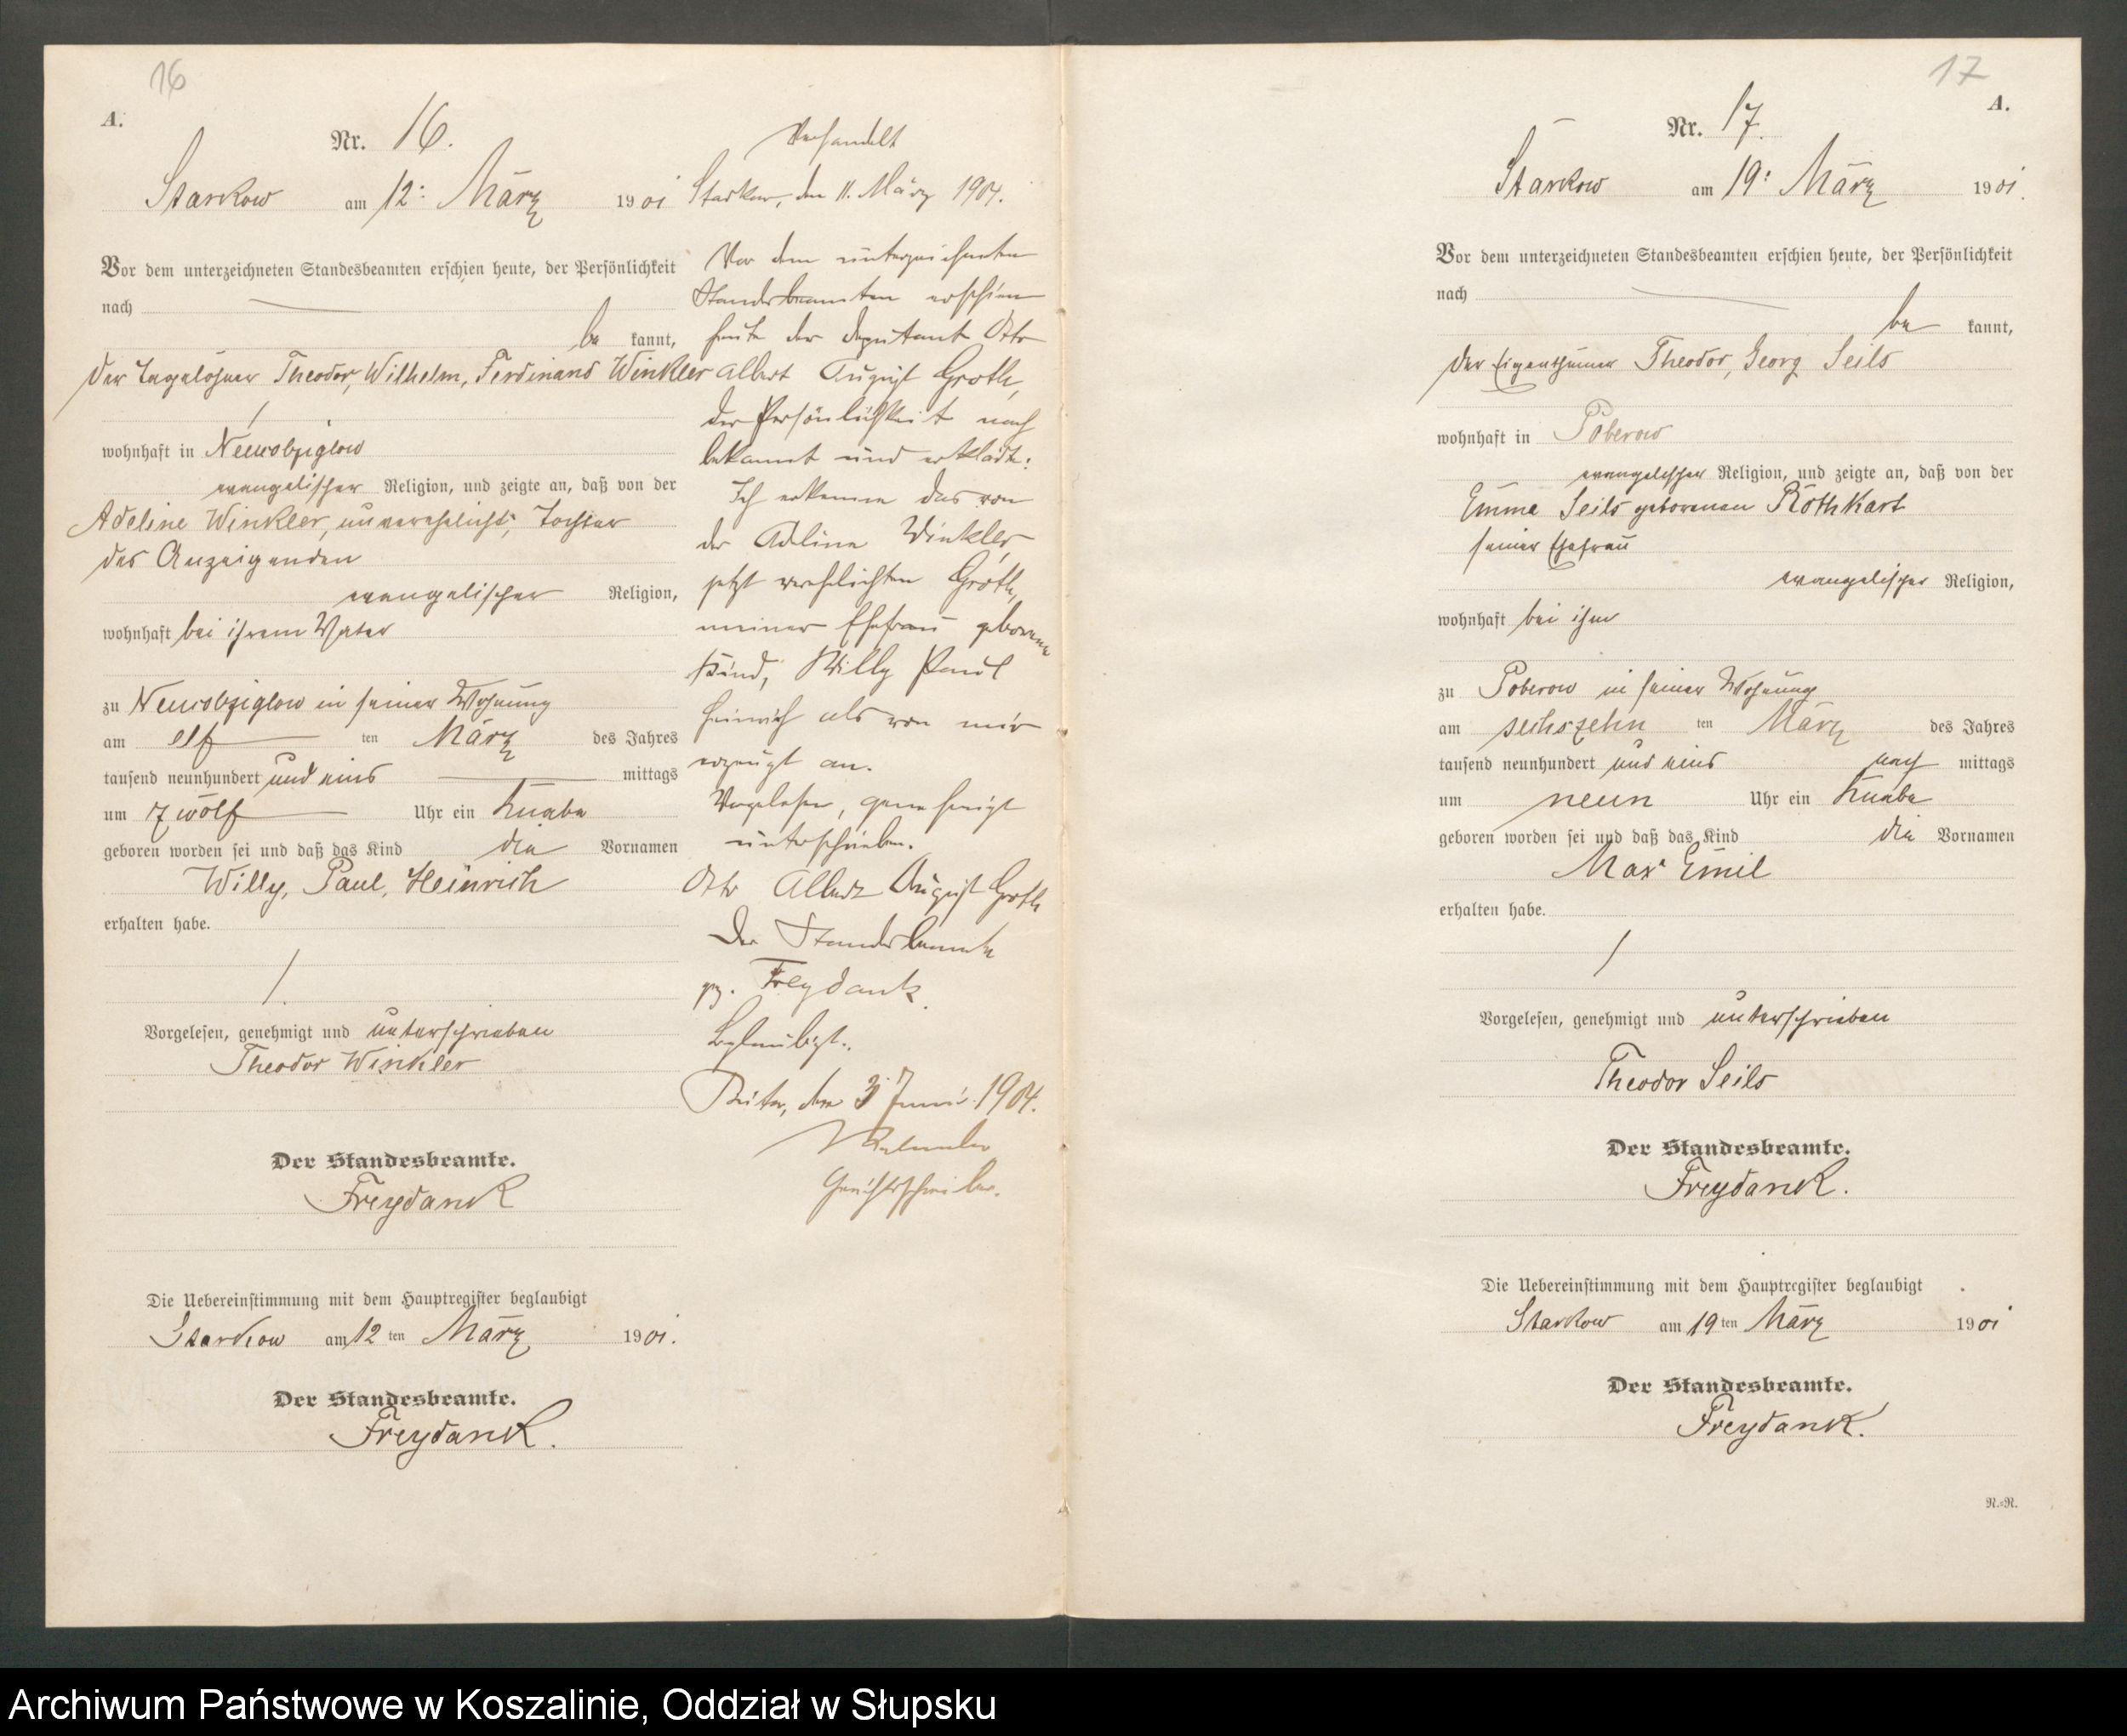 16
A.
Nr. 16.
Starkow am 12: März 1901
Vor dem unterzeichneten Standesbeamten erschien heute, der Persönlichkeit
nach
be kannt,
der Tagelöhner Theodor, Wilhelm, Ferdinand Winkler
wohnhaft in Neuwobziglow
evangelischer Religion, und zeigte an, daß von der
Adeline Winkler, unverehelicht, Tochter
des Anzeigenden
evangelischer Religion,
wohnhaft bei ihrem Vater
zu Neuwobziglow in seiner Wohnung
am elf ten März des Jahres
tausend neunhundert und eins mittags
um zwölf Uhr ein Knabe
geboren worden sei und daß das Kind die Vornamen
Willy, Paul, Heinrich
erhalten habe.
Vorgelesen, genehmigt und unterschrieben
Theodor Winkler
Der Standesbeamte.
Freydank
Die Uebereinstimmung mit dem Hauptregister beglaubigt
Starkow am 12 ten März 1901.
Der Standesbeamte.
Freydank.
Verhandelt
Starkow, den 11. März 1904.
Vor dem unterzeichneten
Standesbeamten erschien
heute der Deputant Otto
Albert August Groth,
der Persönlichkeit nach
bekannt und erklärte:
Ich erkenne das von
der Adeline Winkler,
jetzt verehelichten Groth,
meiner Ehefrau geborene
Kind, Willy Paul
Heinrich als von mir
erzeugt an.
Vorgelesen, genehmigt
unterschrieben.
Otto Albert August Groth
Der Standesbeamte
gez. Freydank.
Beglaubigt.
den 3 Juni 1904.
Gerichtsschreiber.
17
A.
Nr. 17.
Starkow am 19: März 1901.
Vor dem unterzeichneten Standesbeamten erschien heute, der Persönlichkeit
nach
be kannt,
der Eigenthümer Theodor, Georg Seils
wohnhaft in Poberow
evangelischer Religion, und zeigte an, daß von der
Emma Seils geborenen Rothkart
seiner Ehefrau
evangelischer Religion,
wohnhaft bei ihm
zu Poberow in seiner Wohnung
am sechszehn ten März des Jahres
tausend neunhundert und eins nach mittags
um neun Uhr ein Knabe
geboren worden sei und daß das Kind die Vornamen
Max Emil
erhalten habe.
Vorgelesen, genehmigt und unterschrieben
Theodor Seils
Der Standesbeamte.
Freydank.
Die Uebereinstimmung mit dem Hauptregister beglaubigt
Starkow am 19 ten März 1901
Der Standesbeamte.
Freydank.
N.=N.
Archiwum Państwowe w Koszalinie, Oddział w Słupsku